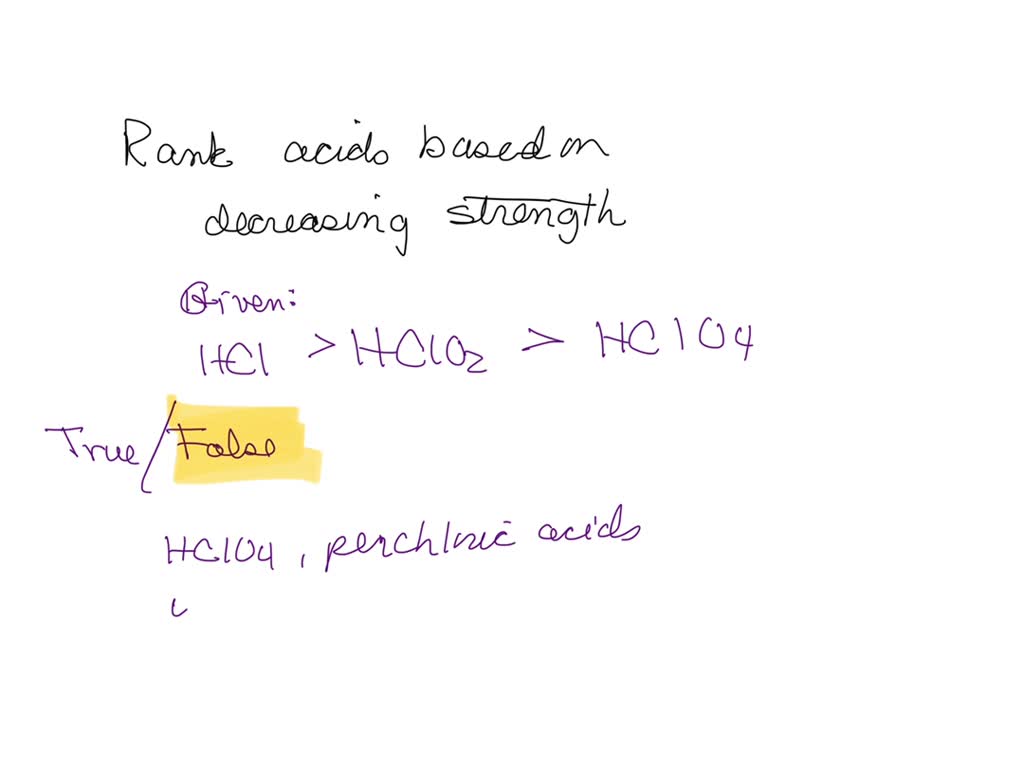 Rank acids based on
decreasing strength
Given:
HCl > HClO₂ > HClO4
True/False
HClO4, perchloric acids